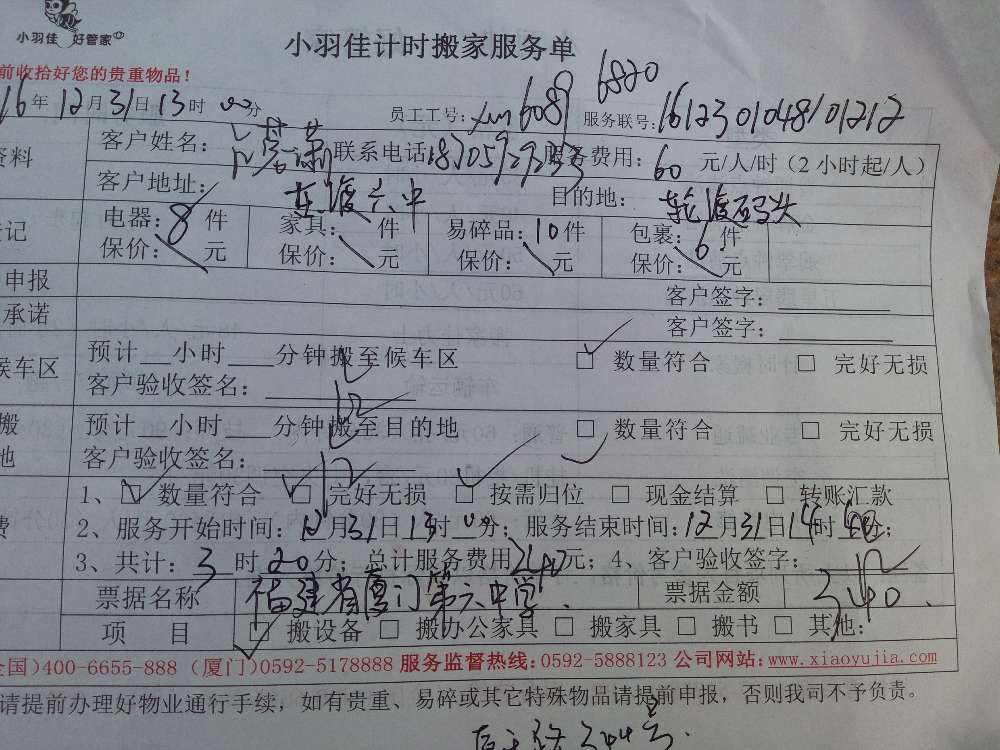 小羽佳 好管家
小羽佳计时搬家服务单
前收拾好您的贵重物品！
16年12月31日13时00分 员工工号：xm6089 6820 服务联号：1612301048101212
资料 客户姓名： 联系电话 服务费用：60元/人/时（2小时起/人）
客户地址： 六中 目的地：轮渡码头
登记 电器：8件 家具： 件 易碎品：10件 包裹：6件
保价： 元 保价： 元 保价： 元 保价： 元
申报 客户签字：
承诺 客户签字：
候车区 预计 小时 分钟搬至候车区 □ 数量符合 □ 完好无损
客户验收签名：
搬 预计 小时 分钟搬至目的地 □ 数量符合 □ 完好无损
地 客户验收签名：
1、□ 数量符合 □ 完好无损 □ 按需归位 □ 现金结算 □ 转账汇款
费 2、服务开始时间：12月31日13时00分；服务结束时间：12月31日14时 分；
3、共计：3时20分；总计服务费用240元；4、客户验收签字：
票据名称 福建省厦门第六中学. 票据金额 240.
项 目 □ 搬设备 □ 搬办公家具 □ 搬家具 □ 搬书 □ 其他：
全国)400-6655-888 (厦门)0592-5178888 服务监督热线：0592-5888123 公司网站：www.xiaoyujia.com
请提前办理好物业通行手续，如有贵重、易碎或其它特殊物品请提前申报，否则我司不予负责。